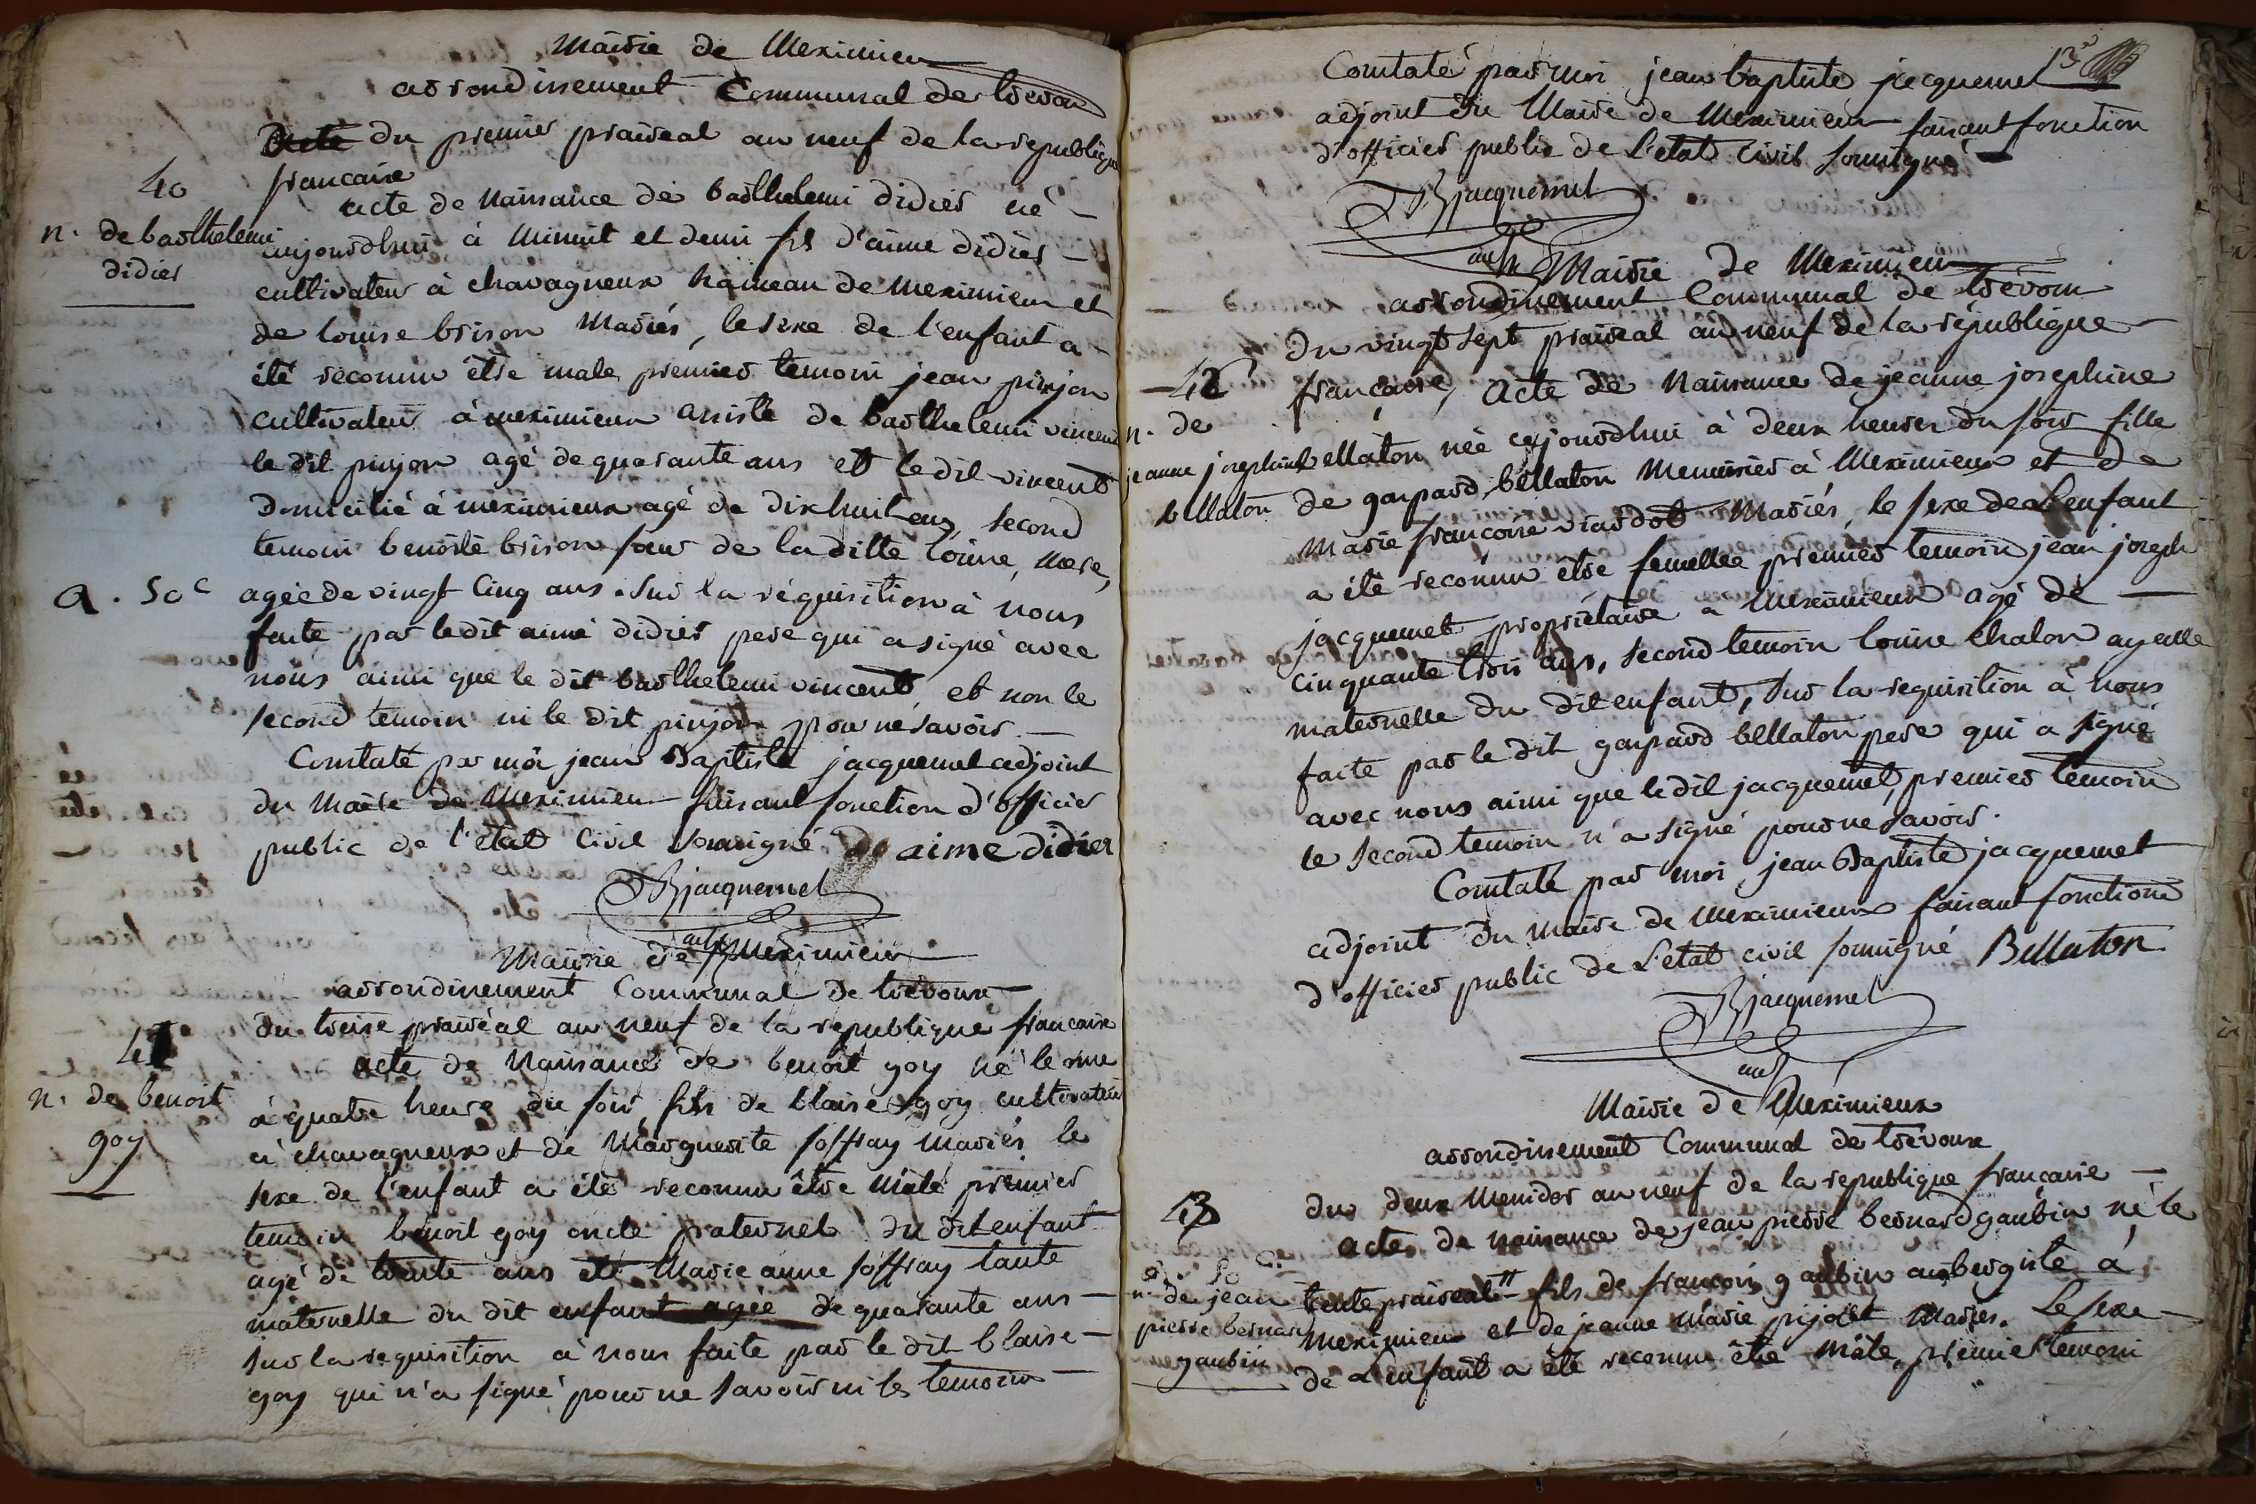 Mairie de Meximieu
arrondissement Communal de trevou
Acte du premier prairéal an neuf de la republique
40
francaise
acte de Naissance de barthelemi didier né
n. de barthelemi
didier
aujourdhui à Minuit et demi fils d'aimé didier
cultivateur à chavagneux hameau de meximieux et
de louise brison Mariés, le sexe de l'enfant a
été reconnu être male premier temoin jean pinjon
cultivateur à meximieux assisté de barthelemi vincent
le dit pinjon agé de quarante ans et le dit vincent
domicilié à meximieux agé de dix huit ans, second
temoin benoite brison sœur de la ditte louise, mere,
a. 50c
agée de vingt cinq ans. sur la réquisition à nous
faite par le dit aimé didier pere qui a signé avec
nous ainsi que le dit barthelemi vincent et non le
second temoin ni le dit pinjon pour ne savoir
Constaté par moi jean Baptiste jacquemet adjoint
du Maire de Meximieu faisant fonction d'officier
public de l'état civil soussigné aime didier
JB jacquemet
adj
Mairie de Meximieu
arrondissement Communal de trévoux
du treise prairéal an neuf de la republique francaise
41
acte de Naissance de benoit goy né le onse
n. de benoit
goy
à quatre heure du soir, fils de blaise goy cultivateur
à chavagneux et de Marguerite soffray mariés le
sexe de l'enfant a été reconnu être Mâle premier
temoin benoit goy oncle paternel du dit enfant
agé de trente ans et Marie anne soffray tante
maternelle du dit enfant agée de quarante ans
sur la requisition à nous faite par le dit blaise
goy qui n'a signé pour ne savoir ni les temoins
13
Constaté par moi jean baptiste jacquemet
adjoint du Maire de Meximieux faisant fonction
d'officier public de L'etat civil soussigné
JB jacquemet
adj
Mairie de Meximieu
arrondissement Communal de trévoux
du vingt sept prairéal an neuf de la république
42
francaise, Acte de Naissance de jeanne josephine
n. de
jeanne josephine
bellaton
bellaton née aujourdhui à deux heures du soir fille
de gaspard bellaton Menuisier à Meximieux et de
Marie francoise viardot Mariés, le sexe de L'enfant
a été reconnu être femelle premier temoin jean joseph
jacquemet propriétaire a Meximieux agé de
cinquante trois ans, second temoin louise chalon ayeulle
maternelle du dit enfant, sur la requisition à nous
faite par le dit gaspard bellaton pere qui a signé
avec nous ainsi que le dit jacquemet, premier temoin
le second temoin n'a signé pour ne savoir.
Constaté par moi jean Baptiste jacquemet
adjoint du Maire de Meximieux faisant fonction
d'officier public de L'etat civil soussigné Bellaton
JB jacquemet
adj
Mairie de Méximieux
arrondissement Communal de trévoux
du deux Messidor an neuf de la republique française
43
acte de naissance de jean pierre bernard gaubin né le
a. 50 c.
n. de jean
pierre bernard
gaubin
trente prairéal fils de francois gaubin aubergiste à
Meximieu et de jeanne marie pijollet Mariés. Le sexe
de L'enfant a été reconnu être Mâle, premier temoin